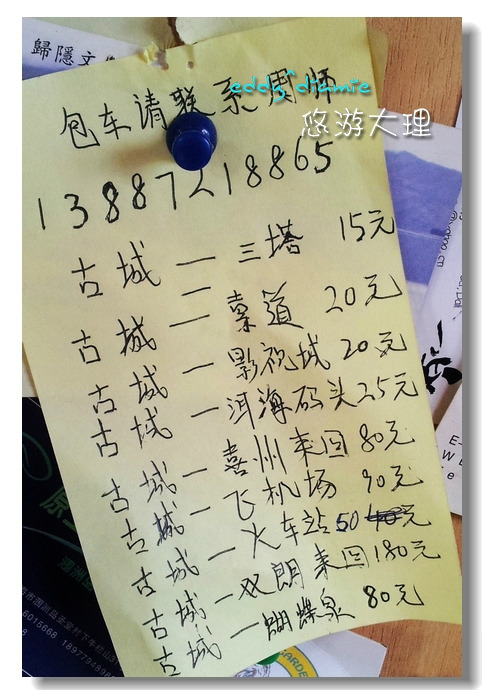 歸隱文
eddy^diamie
悠游大理
包车请联系周师
13887218865
古城—三塔 15元
古城—索道 20元
古城—影视城 20元
古城—洱海码头 25元
古城—喜州来回 80元
古城—飞机场 90元
古城—火车站 50元
古城—双朗来回 180元
古城—蝴蝶泉 80元
@yahoo.cn
GARDE